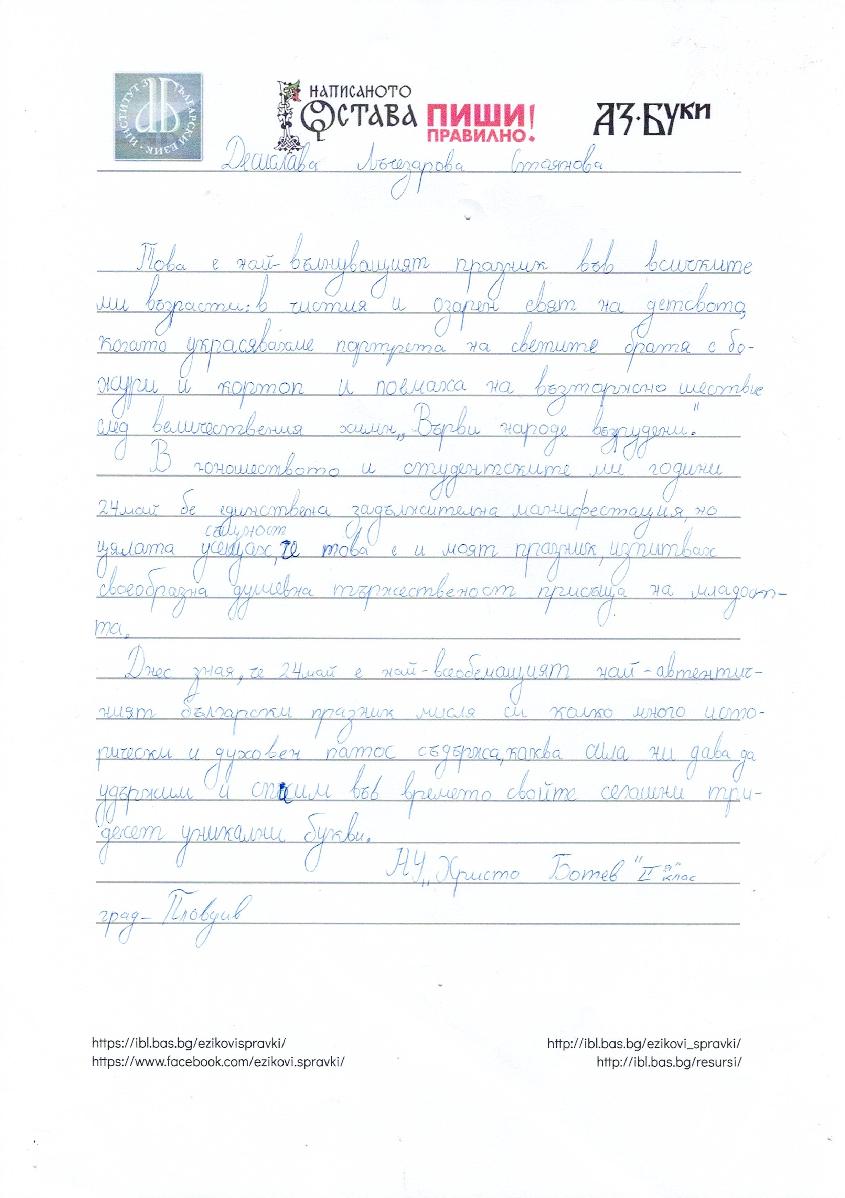 ИНСТИТУТ ЗА БЪЛГАРСКИ ЕЗИК
НАПИСАНОТО
ОСТАВА ПИШИ!
ПРАВИЛНО!
АЗ·БУКИ
Десислава Лъчезарова Стаянова
Това е най-вълнуващият празник във всичките
ми възрасти: в чистия и озарен свят на детсвота,
когато украсявахме портрета на светите братя с бо-
жури и картоп и поемаха на възторжено шествие
след величествения химн „Върви народе възрудени."
В юношеството и студентските ми години
24май бе единствена задължителна манифестация, но
същност
цялата усещах, че това е и моят празник, изпитвах
своеобразна душевна тържественост присъща на младост-
та.
Днес зная, че 24май е най-всеобемащият най-автентич-
ният български празник мисля си колко много исто-
рически и духовен патос съдържа, каква сила ни дава да
удържим и спасим във времето свойте сегашни три-
десет уникални букви.
НУ „Христо Ботев" II "а" клас
град- Пловдив
https://ibl.bas.bg/ezikovispravki/ http://ibl.bas.bg/ezikovi_spravki/
https://www.facebook.com/ezikovi.spravki/ http://ibl.bas.bg/resursi/